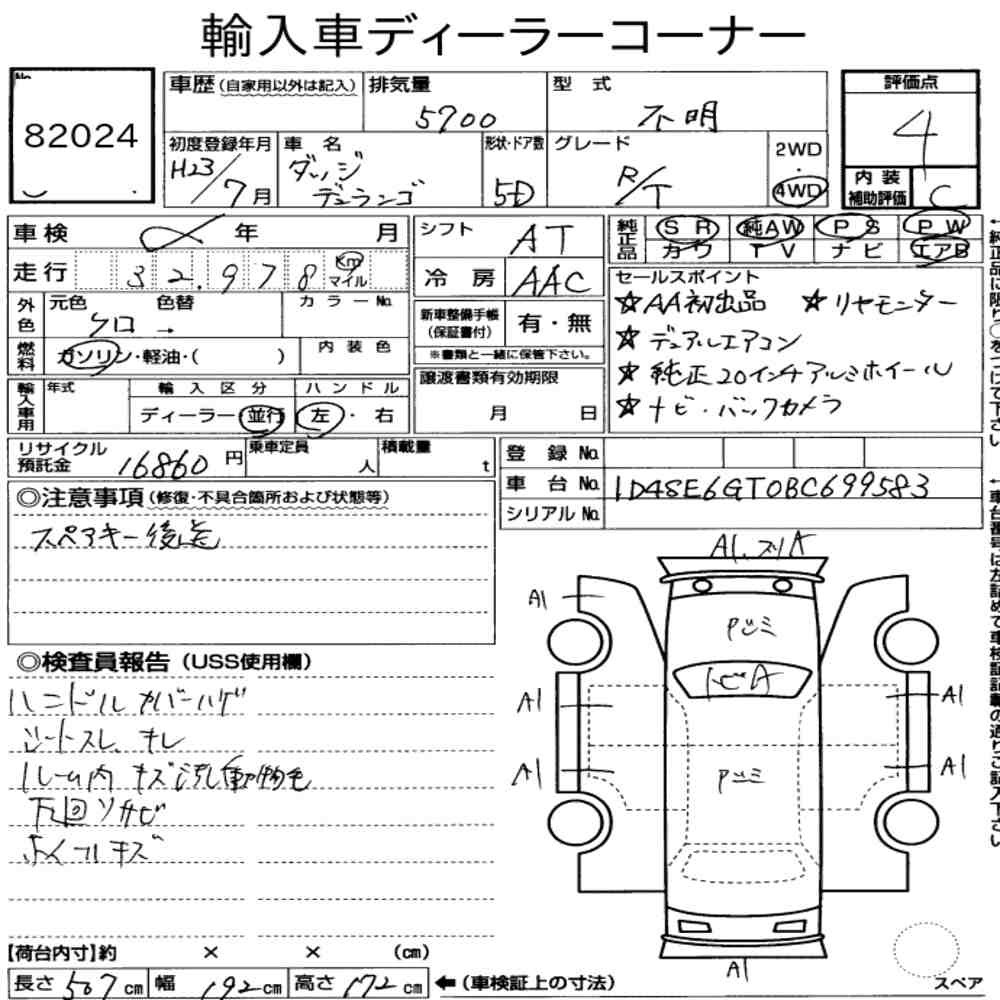 輸入車ディーラーコーナー
No.
82024
車歴(自家用以外は記入)
排気量
5700
型 式
不明
評価点
4
初度登録年月
H23/7月
車 名
ダッジ
デュランゴ
形状・ドア数
5D
グレード
R/T
2WD
・
4WD
内 装
補助評価
C
車 検
年
月
走 行
32,978
Km
マイル
シフト
AT
冷 房
AAC
純正品
SR
純AW
PS
PW
カワ
TV
ナビ
エアB
外色
元色
色替
カラーNo.
クロ →
燃料
ガソリン・軽油・( )
内 装 色
新車整備手帳
(保証書付)
有・無
※書類と一緒に保管下さい。
セールスポイント
☆AA初出品 ☆リヤモニター
☆デュアルエアコン
☆純正20インチアルミホイール
☆ナビ・バックカメラ
輸入車用
年式
輸 入 区 分
ディーラー・並行
ハ ン ド ル
左・右
譲渡書類有効期限
月 日
リサイクル
預託金
16860円
乗車定員
人
積載量
t
登 録 No.
車 台 No.
1D4SE6GT0BC699583
シリアル No.
◎注意事項(修復・不具合箇所および状態等)
スペアキー後送
◎検査員報告(USS使用欄)
ハンドルカバーハゲ
シートスレ、キレ
ルーム内 キズ 汚れ
下回りサビ
A1
A1
Pツミ
トビA
A1
A1
Pツミ
A1
A1
A1
【荷台内寸】約 × × (cm)
長さ507cm
幅192cm
高さ172cm
←(車検証上の寸法)
スペア